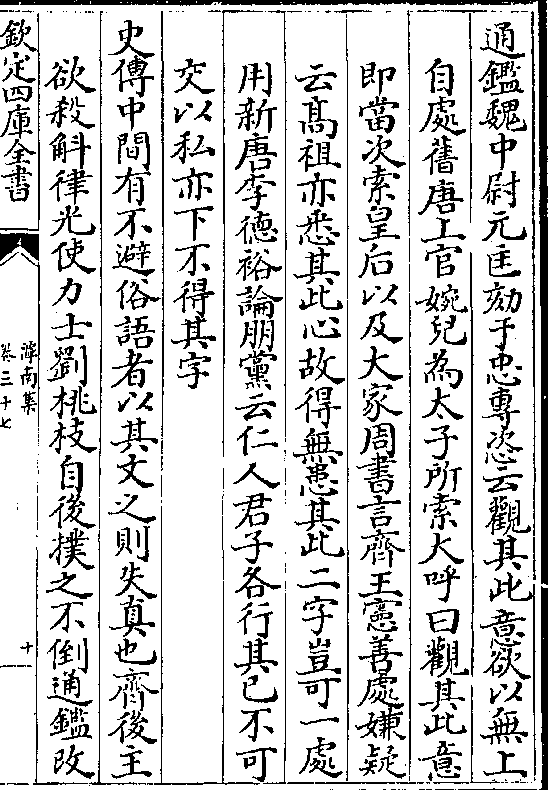 通鑑魏中尉元匡劾于忠專恣云觀其此意欲以無上
自處舊唐上官婉兒為太子所索大呼曰觀其此意
即當次索皇后以及大家周書言齊王憲善處嫌疑
云髙祖亦悉其此心故得無患其此二字豈可一處
用新唐李德裕論朋黨云仁人君子各行其已不可
交以私亦下不得其字
史傳中間有不避俗語者以其文之則失真也齊後主
欲殺斛律光使力士劉桃枝自後撲之不倒通鑑改
欽定四庫全書
滹南集
卷三十七
十